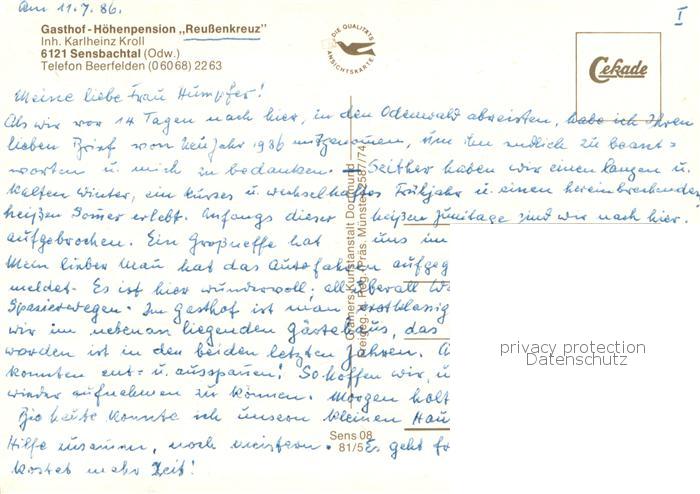 Am 11.7.86.
I
Gasthof-Höhenpension „Reußenkreuz"
Inh. Karlheinz Kroll
6121 Sensbachtal (Odw.)
Telefon Beerfelden (06068) 2263
DIE QUALITÄTS ANSICHTSKARTE
Cekade
Meine liebe Frau Humpfer!
Als wir vor 14 Tagen nach hier, in den Odenwald abreisten, habe ich Ihren
lieben Brief vom Neujahr 1986 mitgenommen, um ihn endlich zu beant-
worten u. mich zu bedanken. Seither haben wir einen langen u.
kalten Winter, ein kurzes u. wechselhaftes Frühjahr u. einen hereinbrechenden
heißen Somer erlebt. Anfangs dieser heißen Junitage sind wir nach hier
aufgebrochen. Ein Großneffe hat uns im
Mein lieber Man hat das Autofahren aufgeg
meldet. Es ist hier wundervoll; all überall Wa
Spazierwegen. Im Gasthof ist man erstklassig
wir im nebenan liegenden Gästehaus, das
worden ist in den beiden letzten Jahren. A
konnten ent- u. ausspanen! So hoffen wir, u
wieder aufnehmen zu können. Morgen holt
Bis heute konnte ich unsern kleinen Hau
Hilfe zusammen, noch meistern. Es geht
kostet mehr Zeit!
Cramers Kunstanstalt Dortmund
Sens 08
81/5
privacy protection
Datenschutz